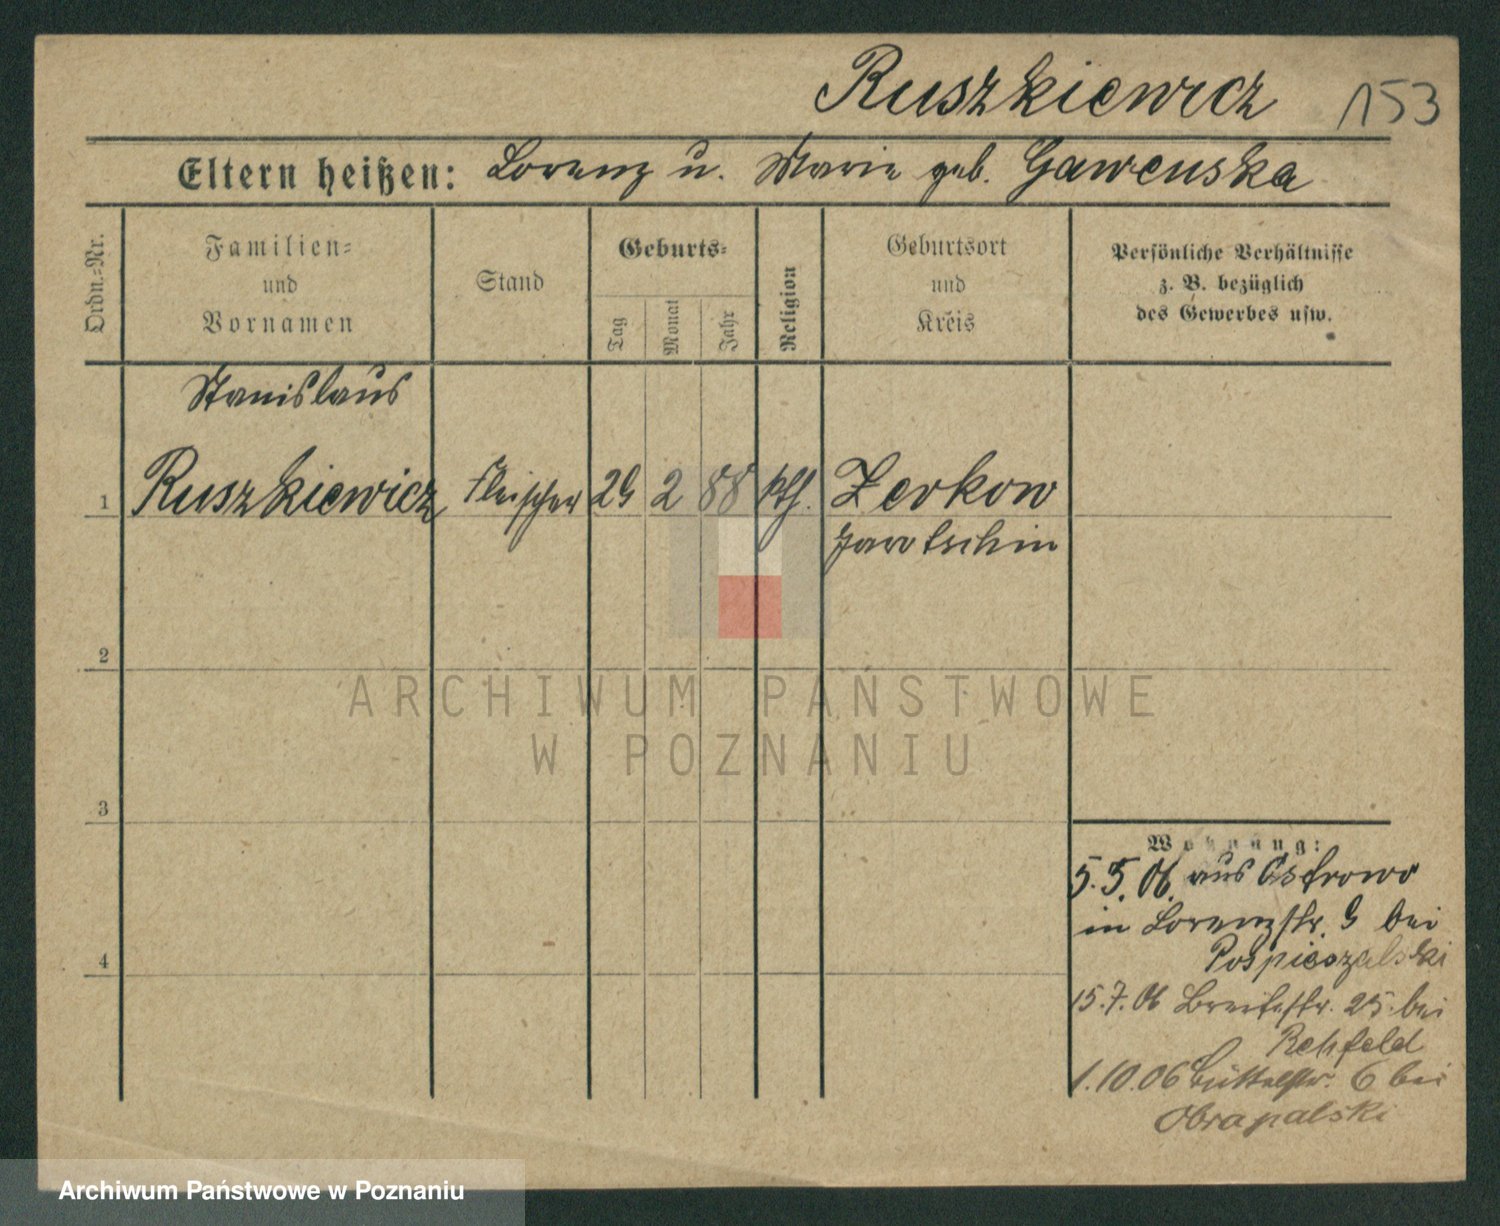 Ruszkiewicz 153
Eltern heißen: Lorenz u. Marie geb. Gawenska
Ordn.=Nr.
Familien=
und
Vornamen
Stand
Geburts=
Tag
Monat
Jahr
Religion
Geburtsort
und
Kreis
Persönliche Verhältnisse
z. B. bezüglich
des Gewerbes usw.
Stanislaus
1 Ruszkiewicz Fleischer 29 2 88 kth. Zerkow
Jarotschin
2
ARCHIWUM PAŃSTWOWE
W POZNANIU
3
Wohnung:
5.5.06. aus Ostrowo
in Lorenzstr. 9 bei
Pospieszalski
4
15.7.06 Breitestr. 25 bei
Rehfeld
1.10.06 Büttelstr. 6 bei
Obrapalski
Archiwum Państwowe w Poznaniu